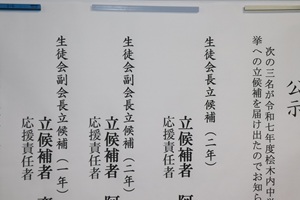 公示
次の三名が令和七年度桧木内中学
挙への立候補を届け出たのでお知ら
生徒会長立候補（二年）
立候補者 阿
応援責任者
生徒会副会長立候補（二年）
立候補者 阿
応援責任者
生徒会副会長立候補（一年）
立候補者
応援責任者